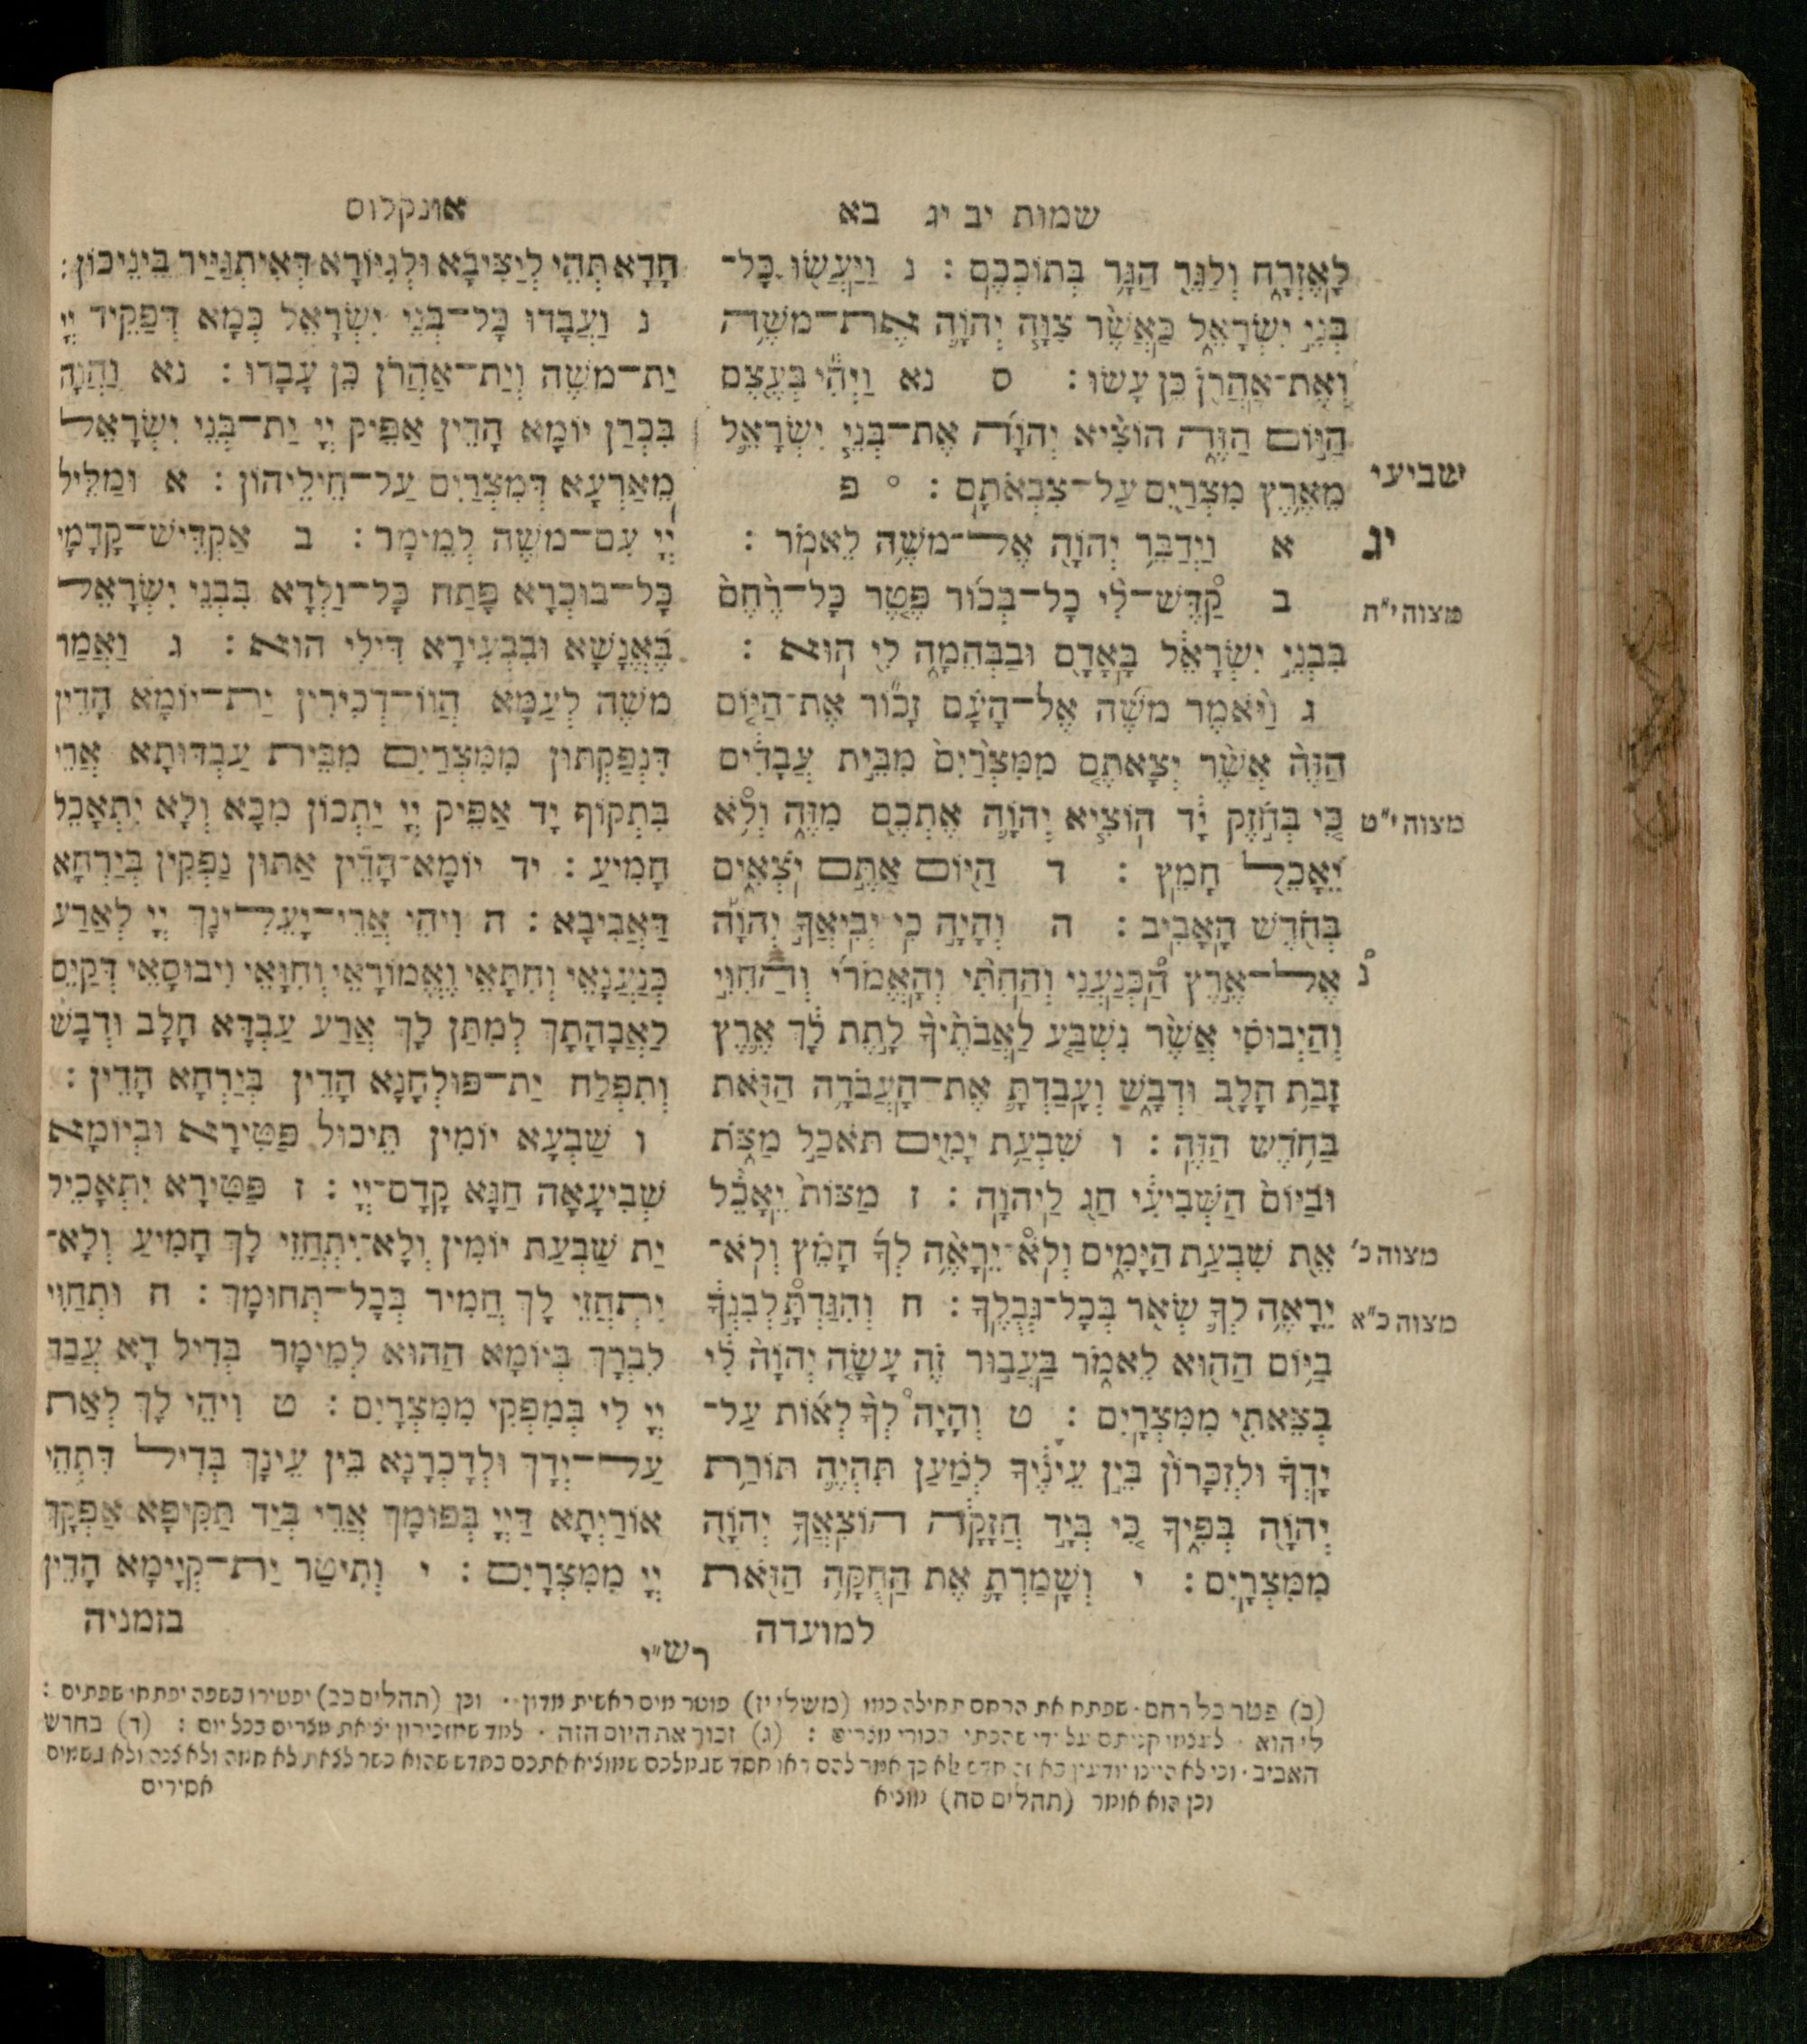 שמות יב יג בא
לָאֶזְרָ֑ח וְלַגֵּ֖ר הַגָּ֥ר בְּתוֹכְכֶֽם : נ וַיַּעֲשׂ֖וּ כָּל־
בְּנֵ֣י יִשְׂרָאֵ֑ל כַּאֲשֶׁ֨ר צִוָּ֧ה יְהוָ֛ה אֶת־משֶׁ֥ה
וְאֶֽת־אַהֲרֹ֖ן כֵּ֥ן עָשֽׂוּ : ס נא וַיְהִ֕י בְּעֶ֖צֶם
הַיּ֣וֹם הַזֶּ֑ה הוֹצִ֨יא יְהוָ֜ה אֶת־בְּנֵ֧י יִשְׂרָאֵ֛ל
מֵאֶ֥רֶץ מִצְרַ֖יִם עַל־צִבְאֹתָֽם : ° פ
שביעי
יג
א וַיְדַבֵּ֥ר יְהוָ֖ה אֶל־משֶׁ֥ה לֵּאמֹֽר :
ב קַדֶּשׁ־לִ֨י כָל־בְּכ֜וֹר פֶּ֤טֶר כָּל־רֶ֙חֶם֙
מצוה י״ח
בִּבְנֵ֣י יִשְׂרָאֵ֔ל בָּאָדָ֖ם וּבַבְּהֵמָ֑ה לִ֖י הֽוּא :
ג וַיֹּ֨אמֶר משֶׁ֜ה אֶל־הָעָ֗ם זָכ֞וֹר אֶת־הַיּ֤וֹם
הַזֶּה֙ אֲשֶׁ֨ר יְצָאתֶ֤ם מִמִּצְרַ֙יִם֙ מִבֵּ֣ית עֲבָדִ֔ים
כִּ֚י בְּחֹ֣זֶק יָ֔ד הוֹצִ֧יא יְהוָ֛ה אֶתְכֶ֖ם מִזֶּ֑ה וְלֹ֥א
מצוה י״ט
יֵאָכֵ֖ל חָמֵֽץ : ד הַיּ֖וֹם אַתֶּ֣ם יֹצְאִ֑ים
בְּחֹ֖דֶשׁ הָאָבִֽיב : ה וְהָיָ֣ה כִֽי יְבִֽיאֲךָ֣ יְהוָ֡ה
אֶל־אֶ֣רֶץ הַ֠כְּנַעֲנִי וְהַחִתִּ֨י וְהָאֱמֹרִ֜י וְהַחִוִּ֣י
נ
וְהַיְבוּסִ֗י אֲשֶׁ֨ר נִשְׁבַּ֤ע לַאֲבֹתֶ֙יךָ֙ לָ֣תֶת לָ֔ךְ אֶ֛רֶץ
זָבַ֥ת חָלָ֖ב וּדְבָ֑שׁ וְעָבַדְתָּ֛ אֶת־הָעֲבֹדָ֥ה הַזֹּ֖את
בַּחֹ֥דֶשׁ הַזֶּֽה : ו שִׁבְעַ֥ת יָמִ֖ים תֹּאכַ֣ל מַצֹּ֑ת
וּבַיּוֹם֙ הַשְּׁבִיעִ֔י חַ֖ג לַֽיהוָֽה : ז מַצּוֹת֙ יֵֽאָכֵ֔ל
אֵ֖ת שִׁבְעַ֣ת הַיָּמִ֑ים וְלֹֽא־יֵרָאֶ֨ה לְךָ֜ חָמֵ֗ץ וְלֹֽא־
מצוה כ׳
יֵרָאֶ֥ה לְךָ֛ שְׂאֹ֖ר בְּכָל־גְּבֻלֶֽךָ : ח וְהִגַּדְתָּ֣ לְבִנְךָ֔
מצוה כ״א
בַּיּ֥וֹם הַה֖וּא לֵאמֹ֑ר בַּעֲב֣וּר זֶ֗ה עָשָׂ֤ה יְהוָה֙ לִ֔י
בְּצֵאתִ֖י מִמִּצְרָֽיִם : ט וְהָיָה֩ לְךָ֨ לְא֜וֹת עַל־
יָדְךָ֗ וּלְזִכָּרוֹן֙ בֵּ֣ין עֵינֶ֔יךָ לְמַ֗עַן תִּהְיֶ֛ה תּוֹרַ֥ת
יְהוָ֖ה בְּפִ֑יךָ כִּ֚י בְּיָ֣ד חֲזָקָ֔ה הוֹצִאֲךָ֥ יְהוָ֖ה
מִמִּצְרָֽיִם : י וְשָׁמַרְתָּ֛ אֶת הַחֻקָּ֥ה הַזֹּ֖את
למועדה
אונקלוס
חֲדָא תְּהֵי לְיַצִּיבָא וּלְגִיּוֹרָא דְּאִיתְגַּיַּיר בֵּינֵיכוֹן :
נ וַעֲבָדוּ כָּל־בְּנֵי יִשְׂרָאֵל כְּמָא דְּפַקֵּיד יְיָ
יַת־משֶׁה וְיַת־אַהֲרֹן כֵּן עֲבָדוּ : נא וַהֲוָה
בִּכְרַן יוֹמָא הָדֵין אַפֵּיק יְיָ יַת־בְּנֵי יִשְׂרָאֵל
מֵאַרְעָא דְּמִצְרַיִם עַל־חֵילֵיהוֹן : א וּמַלִּיל
יְיָ עִם־משֶׁה לְמֵימָר : ב אַקְדֵּישׁ־קֳדָמָי
כָּל־בּוּכְרָא פָּתַח כָּל־וַלְדָא בִּבְנֵי יִשְׂרָאֵל
בֶּאֱנָשָׁא וּבִבְעִירָא דִּילִי הוּא : ג וַאֲמַר
משֶׁה לְעַמָּא הֲווֹ־דְכִירִין יַת־יוֹמָא הָדֵין
דִּנְפַקְתּוּן מִמִּצְרַיִם מִבֵּית עַבְדוּתָא אֲרֵי
בִּתְקוֹף יָד אַפֵּיק יְיָ יַתְכוֹן מִכָּא וְלָא יִתְאֲכֵל
חֲמִיעַ : יד יוֹמָא־הָדֵין אַתּוּן נָפְקִין בְּיַרְחָא
דַּאֲבִיבָא : ה וִיהֵי אֲרֵי־יָעֵלִינָךְ יְיָ לְאַרַע
כְּנַעֲנָאֵי וְחִתָּאֵי וֶאֱמוֹרָאֵי וְחִוָּאֵי וִיבוּסָאֵי דְּקַיֵּם
לַאֲבָהָתָךְ לְמִתַּן לָךְ אֲרַע עַבְדָּא חֲלָב וּדְבָשׁ
וְתִפְלַח יַת־פּוּלְחָנָא הָדֵין בְּיַרְחָא הָדֵין :
ו שַׁבְעָא יוֹמִין תֵּיכוּל פַּטִּירָא וּבְיוֹמָא
שְׁבִיעָאָה חַגָּא קֳדָם־יְיָ : ז פַּטִּירָא יִתְאֲכֵיל
יַת שַׁבְעַת יוֹמִין וְלָא־יִתְחֲזֵי לָךְ חֲמִיעַ וְלָא־
יִתְחֲזֵי לָךְ חֲמִיר בְּכָל־תְּחוּמָךְ : ח וּתְחַוִּי
לִבְרָךְ בְּיוֹמָא הַהוּא לְמֵימָר בְּדִיל דָּא עֲבַד
יְיָ לִי בְּמִפְּקִי מִמִּצְרָיִם : ט וִיהֵי לָךְ לְאַת
עַל־יְדָךְ וּלְדָכְרָנָא בֵּין עֵינָךְ בְּדִיל דִּתְהֵי
אוֹרַיְתָא דַּיְיָ בְּפוּמָךְ אֲרֵי בְּיַד תַּקִּיפָא אַפְּקָךְ
יְיָ מִמִּצְרָיִם : י וְתִיטַר יַת־קְיָימָא הָדֵין
בזמניה
רש״י
(ב) פטר כל רחם · שפתח את הרחם תחילה כמו (משלי יז) פוטר מים ראשית מדון · וכן (תהלים כב) יפטירו בשפה יפתחו שפתים :
לי הוא · לעצמי קניתם על ידי שהכתי בכורי מצרים : (ג) זכור את היום הזה · למד שמזכירין יציאת מצרים בכל יום : (ד) בחדש
האביב · וכי לא היינו יודעין באיזה חדש אלא כך אמר להם ראו חסד שגמלכם שמוציא אתכם בחדש שהוא כשר לצאת לא חמה ולא צנה ולא גשמים
וכן הוא אומר (תהלים סח) מוציא אסירים